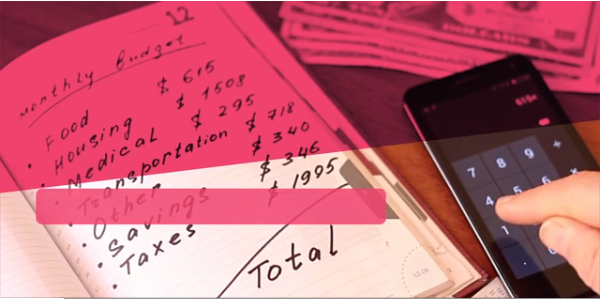 12
Monthly Budget
• Food $ 615
• Housing $ 1508
• Medical $ 295
• Transportation $ 718
• Other $ 340
• Savings $ 346
• Taxes $ 1995
Total
7 8 9
4 5 6
1